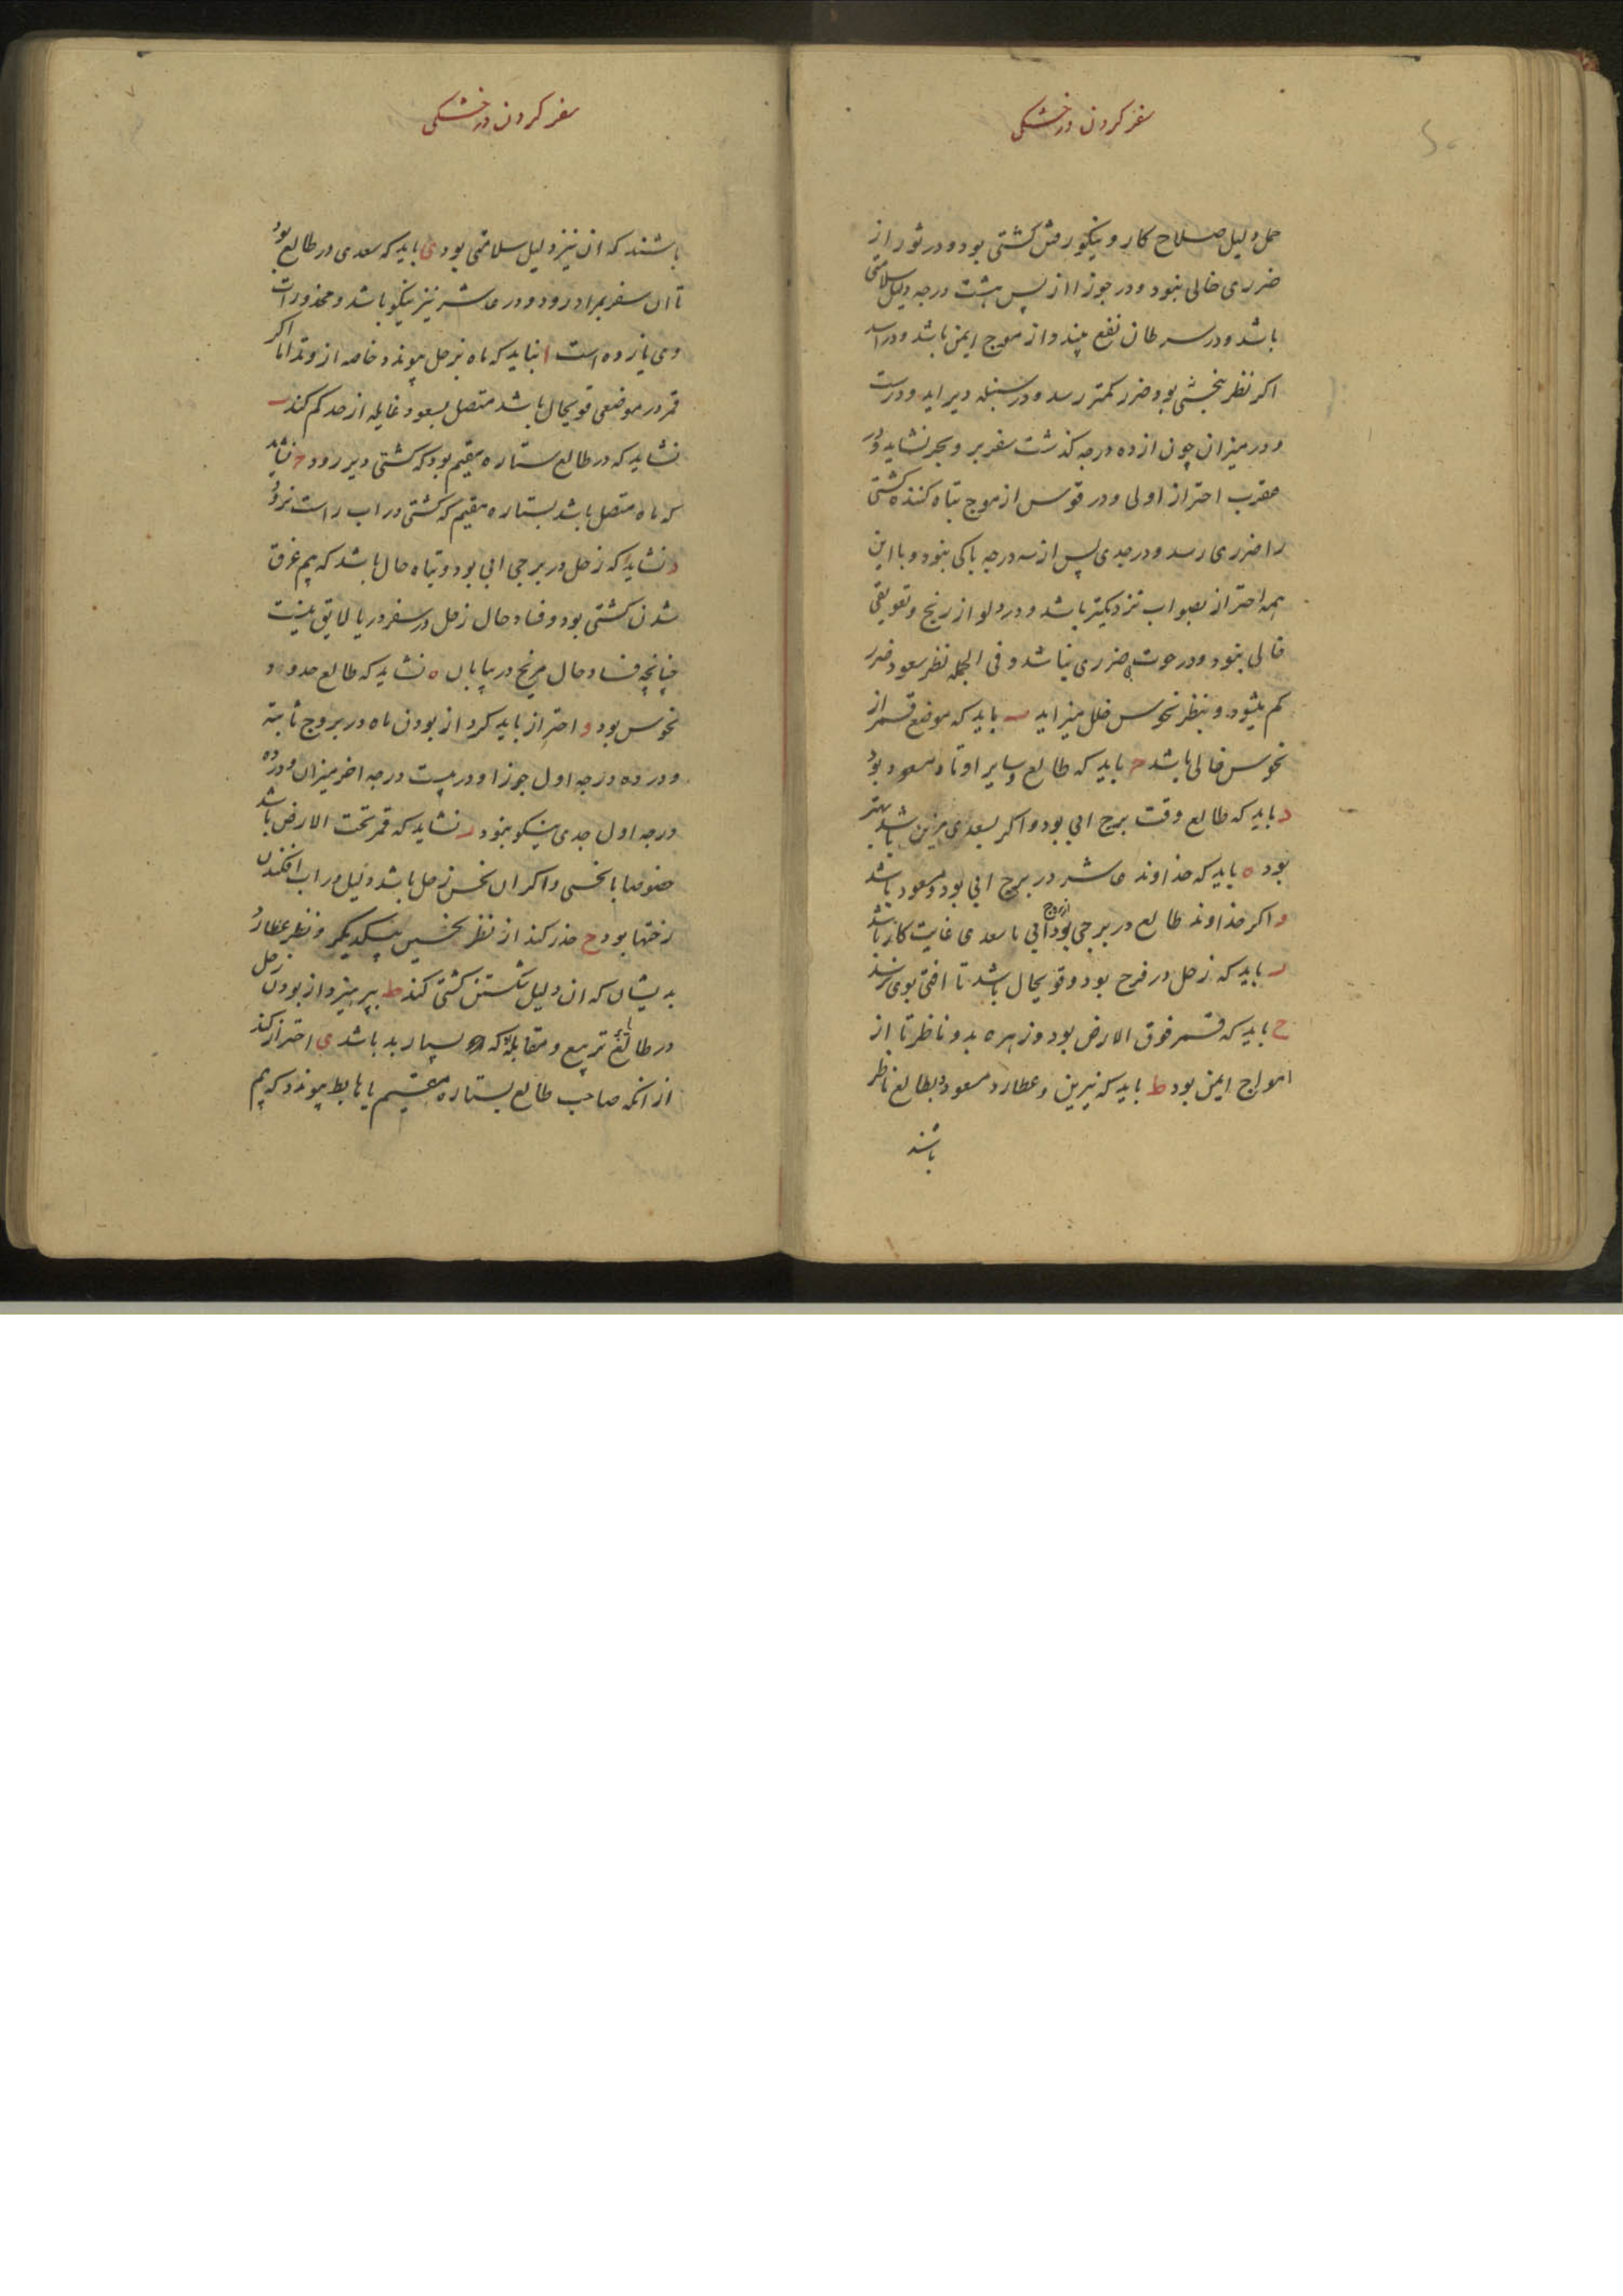 سفر کردن در خشکی
حمل دلیل صلاح کار و نیکو رفتن کشتی بود و در ثور از
ضرری خالی نبود و در جوزا از پس هشت درجه دلیل سلامتی
باشد و در سرطان نفع بیند و از موج ایمن باشد و در اسد
اکر نظر نحشی بود ضرر کمتر رسد و در سنبله دیر اید و درست
و در میزان چون از ده درجه کذشت سفر بر و بحر نشاید و در
عقرب احتراز اولی و در قوس از موج تباه کننده کشتی
را ضرری رسد و در جدی پس از سه درجه باکی نبود و با این
همه احتراز بصواب نزدیکتر باشد و در دلو از رنج و تعویقی
خالی نبود و در حوت ضرری نباشد و فی الجمله نظر سعود ضرر
کم میشود و بنظر نحوس خلل میزاید ب باید که موضع قمر از
نحوس خالی باشد ح باید که طالع و سایر اوتاد مسعود بود
د باید که طالع وقت برج ابی بود و اکر بسعدی مزین باشد بهتر
بود ه باید که خداوند عاشر در برج ابی بود و مسعود باشد
و اکر خداوند طالع در برجی بود از بروج ابی با سعدی غایت کار باشد
ر باید که زحل در فرح بود و قویحال باشد تا افتی بوی نرسد
ح باید که قمر فوق الارض بود و زهره بدو ناظر تا از
امواج ایمن بود ط باید که نیرین و عطارد مسعود و بطالع ناظر
باشند
سفر کردن در خشکی
باشند که ان نیز دلیل سلامتی بود ی باید که سعدی در طالع بود
تا ان سفر بمراد رود و در عاشر نیز نیکو باشد و محذورات
وی یازده است ا نباید که ماه بزحل پیوندد خاصه از وتد اما اکر
قمر در موضعی قویحال باشد متصل بسعود غایله از حد کم کند ب
نشاید که در طالع ستاره مقیم بود که کشتی دیر رود ح نشاید
که ماه متصل باشد بستاره مقیم که کشتی در اب راست نرود
د نشاید که زحل در برجی ابی بود و تباه حال باشد که بیم غرق
شدن کشتی بود و فساد حال زحل در سفر دریا لایق نیست
چنانچه فساد حال مریخ در بیابان ه نشاید که طالع حدود
نحوس بود و احتراز باید کرد از بودن ماه در بروج ثابته
و در ده درجه اول جوزا و در بیست درجه اخر میزان و در ده
درجه اول جدی نیکو نبود ر نشاید که قمر تحت الارض باشد
خصوصا با نحسی و اکر ان نحس زحل باشد دلیل در اب افکندن
رختها بود ح حذر کند از نظر نحسین بیکدیکر و نظر عطارد
بدیشان که ان دلیل شکستن کشتی کند ط بپرهیزد از بودن زحل
در طالع یا تربیع و مقابله که بسیار بد باشد ی احتراز کند
از انکه صاحب طالع بستاره مقیم یا هابط پیوندد که بیم